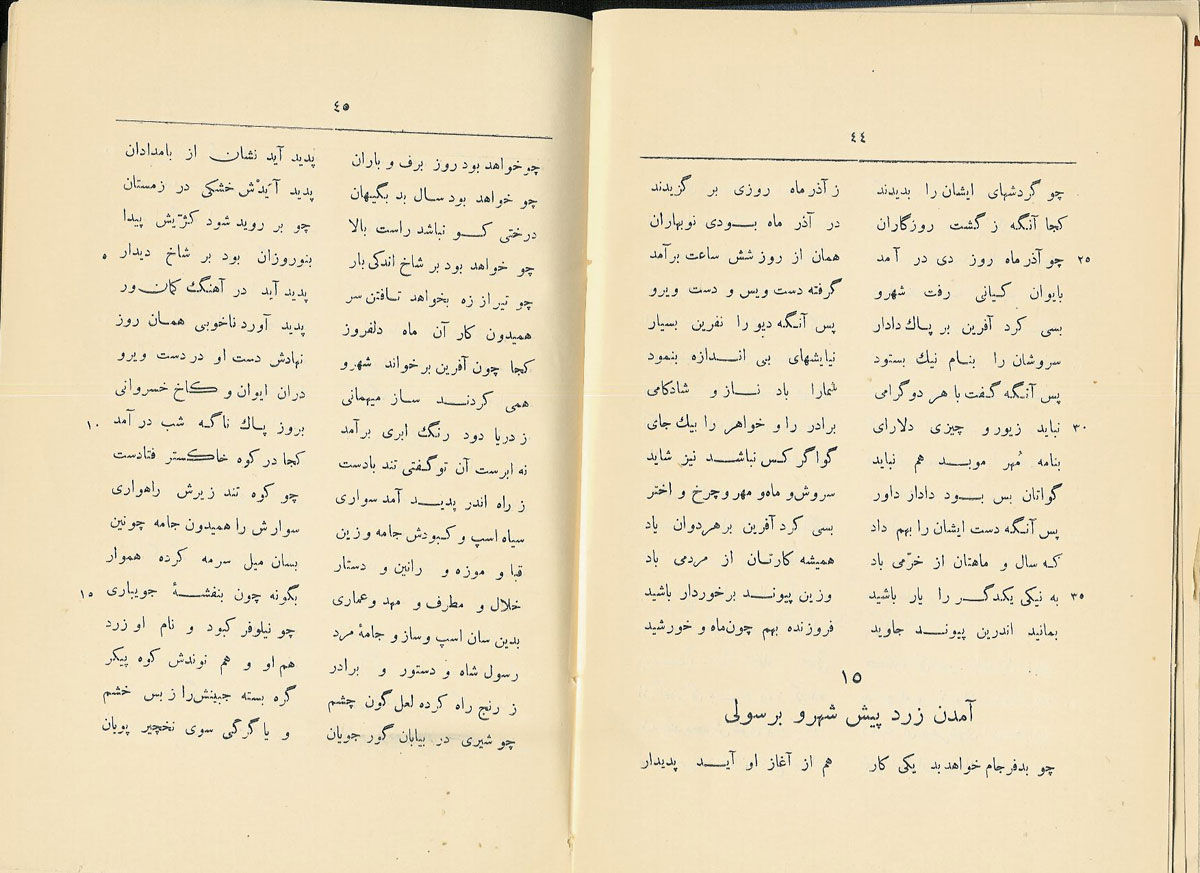 ٤٤
چو گردشهای ایشان را بدیدند ز آذر ماه روزی بر گزیدند
کجا آنگه ز گشت روزگاران در آذر ماه بودی نوبهاران
۲۵ چو آذر ماه روز دی در آمد همان از روز شش ساعت برآمد
بایوان کیانی رفت شهرو گرفته دست ویس و دست ویرو
بسی کرد آفرین بر پاك دادار پس آنگه دیو را نفرین بسیار
سروشان را بنام نیك بستود نیایشهای بی اندازه بنمود
پس آنگه گفت با هر دو گرامی شمارا باد ناز و شادکامی
۳۰ نباید زیور و چیزی دلارای برادر را و خواهر را بیك جای
بنامه مُهر موبد هم نباید گواگر کس نباشد نیز شاید
گواتان بس بود دادار داور سروش و ماه و مهر و چرخ و اختر
پس آنگه دست ایشان را بهم داد بسی کرد آفرین بر هردوان یاد
که سال و ماهتان از خرّمی باد همیشه کارتان از مردمی باد
۳۵ به نیکی یکدگر را یار باشید وزین پیوند برخوردار باشید
بمانید اندرین پیوند جاوید فروزنده بهم چون ماه و خورشید
۱٥
آمدن زرد پیش شهرو برسولی
چو بدفرجام خواهد بد یکی کار هم از آغاز او آید پدیدار
٤٥
چو خواهد بود روز برف و باران پدید آید نشان از بامدادان
چو خواهد بود سال بد بگیهان پدید آیدْش خشکی در زمستان
درختی کو نباشد راست بالا چو بر روید شود کژّیش پیدا
٥ چو خواهد بود بر شاخ اندکی بار بنوروزان بود بر شاخ دیدار
چو تیر از زه بخواهد تافتن سر پدید آید در آهنگ کمان ور
همیدون کار آن ماه دلفروز پدید آورد ناخوبی همان روز
کجا چون آفرین برخواند شهرو نهادش دست او در دست ویرو
همی کردند ساز میهمانی دران ایوان و کاخ خسروانی
۱۰ ز دریا دود رنگ ابری برآمد بروز پاك ناگه شب در آمد
نه ابرست آن توگفتی تند بادست کجا در کوه خاکستر فتادست
ز راه اندر پدید آمد سواری چو کوه تند زیرش راهواری
سیاه اسپ و کبودش جامه و زین سوارش را همیدون جامه چونین
قبا و موزه و رانین و دستار بسان میل سرمه کرده هموار
۱٥ خلال و مطرف و مهد و عماری بگونه چون بنفشهٔ جویباری
بدین سان اسپ و ساز و جامهٔ مرد چو نیلوفر کبود و نام او زرد
رسول شاه و دستور و برادر هم او و هم نوندش کوه پیکر
ز رنج راه کرده لعل گون چشم گره بسته جبینش را ز بس خشم
چو شیری در بیابان گور جویان و یا گرگی سوی نخچیر پویان